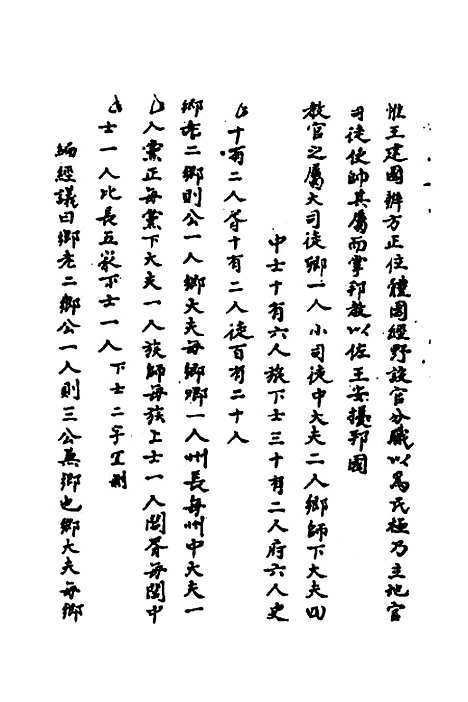 惟王建國辨方正位體國經野設官分職以爲民極乃立地官
司徒使帥其屬而掌邦教以佐王安擾邦國
教官之屬大司徒卿一人小司徒中大夫二人鄉師下大夫四
中士十有六人旅下士三十有二人府六人史
十有二人胥十有二人徒百有二十人
鄉老二鄉則公一人鄉大夫每鄉卿一人州長每州中大夫一
人黨正每黨下大夫一人族師每族上士一人閭胥每閭中
士一人比長五家下士一人 下士二字
編經議曰鄉老二鄉公一人則三公兼鄉也鄉大夫每鄉